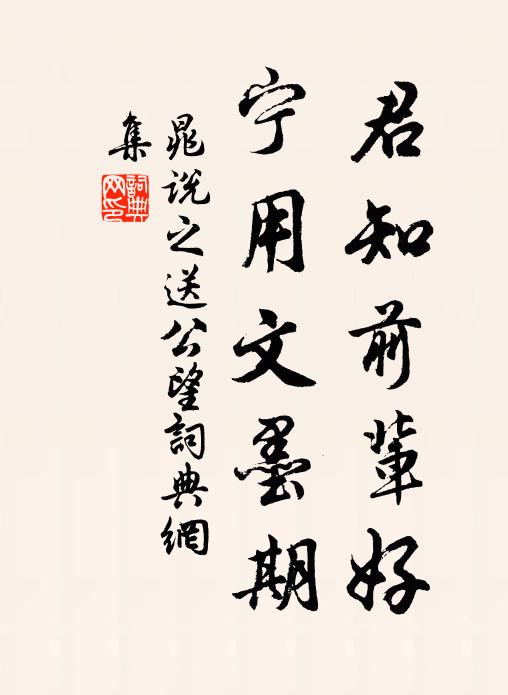 君知前輩好
宁用文墨期
晁説之送公望詞典網
集
詞典網印